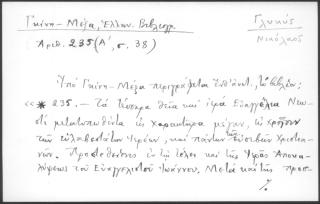 Γκίνη - Μέξα, Ἑλλην. Βιβλιογρ.
Γλυκύς
Νικόλαος
Ἀριθ. 235 (Α΄, σ. 38)
Ὑπὸ Γκίνη - Μέξα περιγράφεται ἐνθ' ἀνωτ. τὸ βιβλίον:
« * 235. - Τὰ τέσσερα θεῖα καὶ ἱερὰ Εὐαγγέλια Νεω-
στὶ μετατυπωθέντα εἰς Χαρακτῆρα μέγαν, εἰς χρῆσιν
τῶν εὐλαβεστάτων Ἱερέων, καὶ πάντων τῶν εὐσεβῶν Χριστια-
νῶν. Προστεθείσης ἐν τῷ τέλει καὶ τῆς Ἱερᾶς Ἀποκα-
λύψεως τοῦ Εὐαγγελιστοῦ Ἰωάννου. Μετὰ καὶ τῆς προσ-